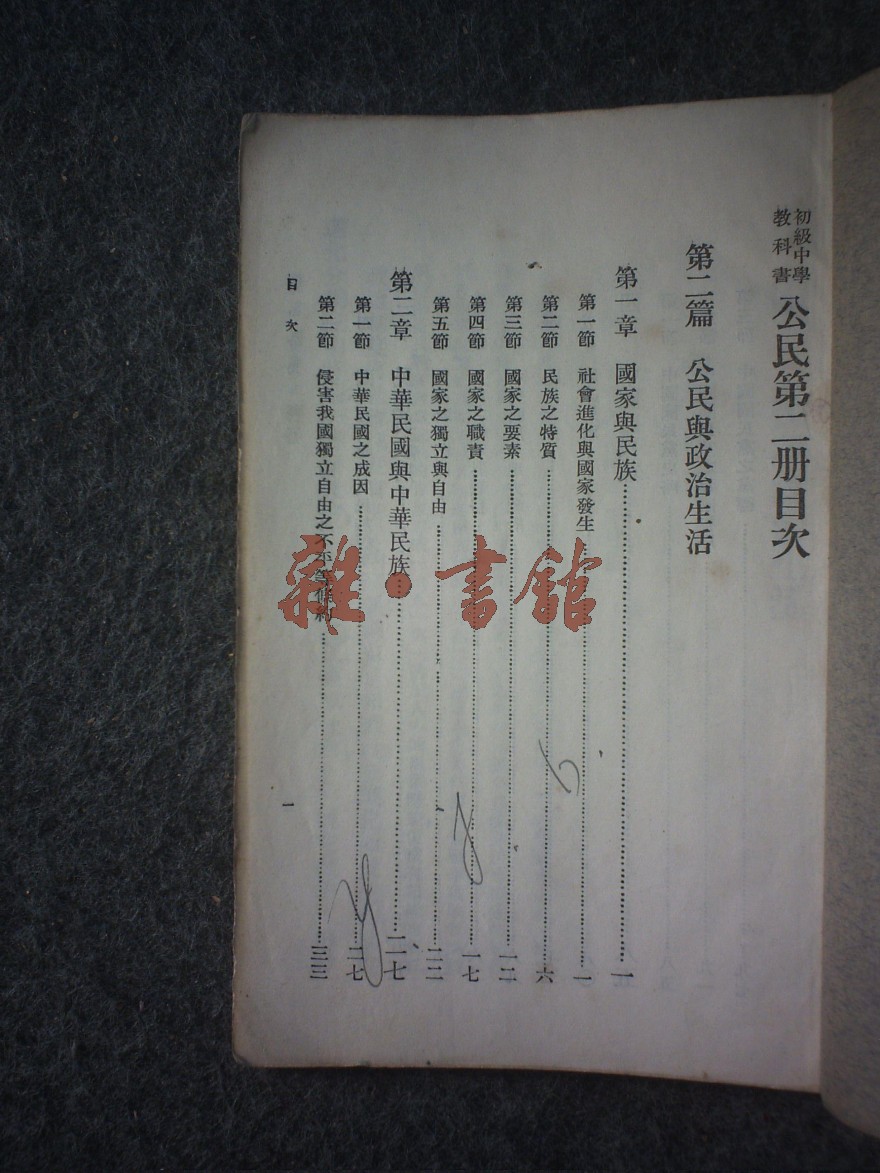 初級中學
教科書
公民第二册目次
第二篇 公民與政治生活
第一章 國家與民族……一
第一節 社會進化與國家發生……一
第二節 民族之特質……六
第三節 國家之要素……一二
第四節 國家之職責……一七
第五節 國家之獨立與自由……二二
第二章 中華民國與中華民族……二七
第一節 中華民國之成因……二七
第二節 侵害我國獨立自由之不平等條約……三三
目次
一
雜·書館